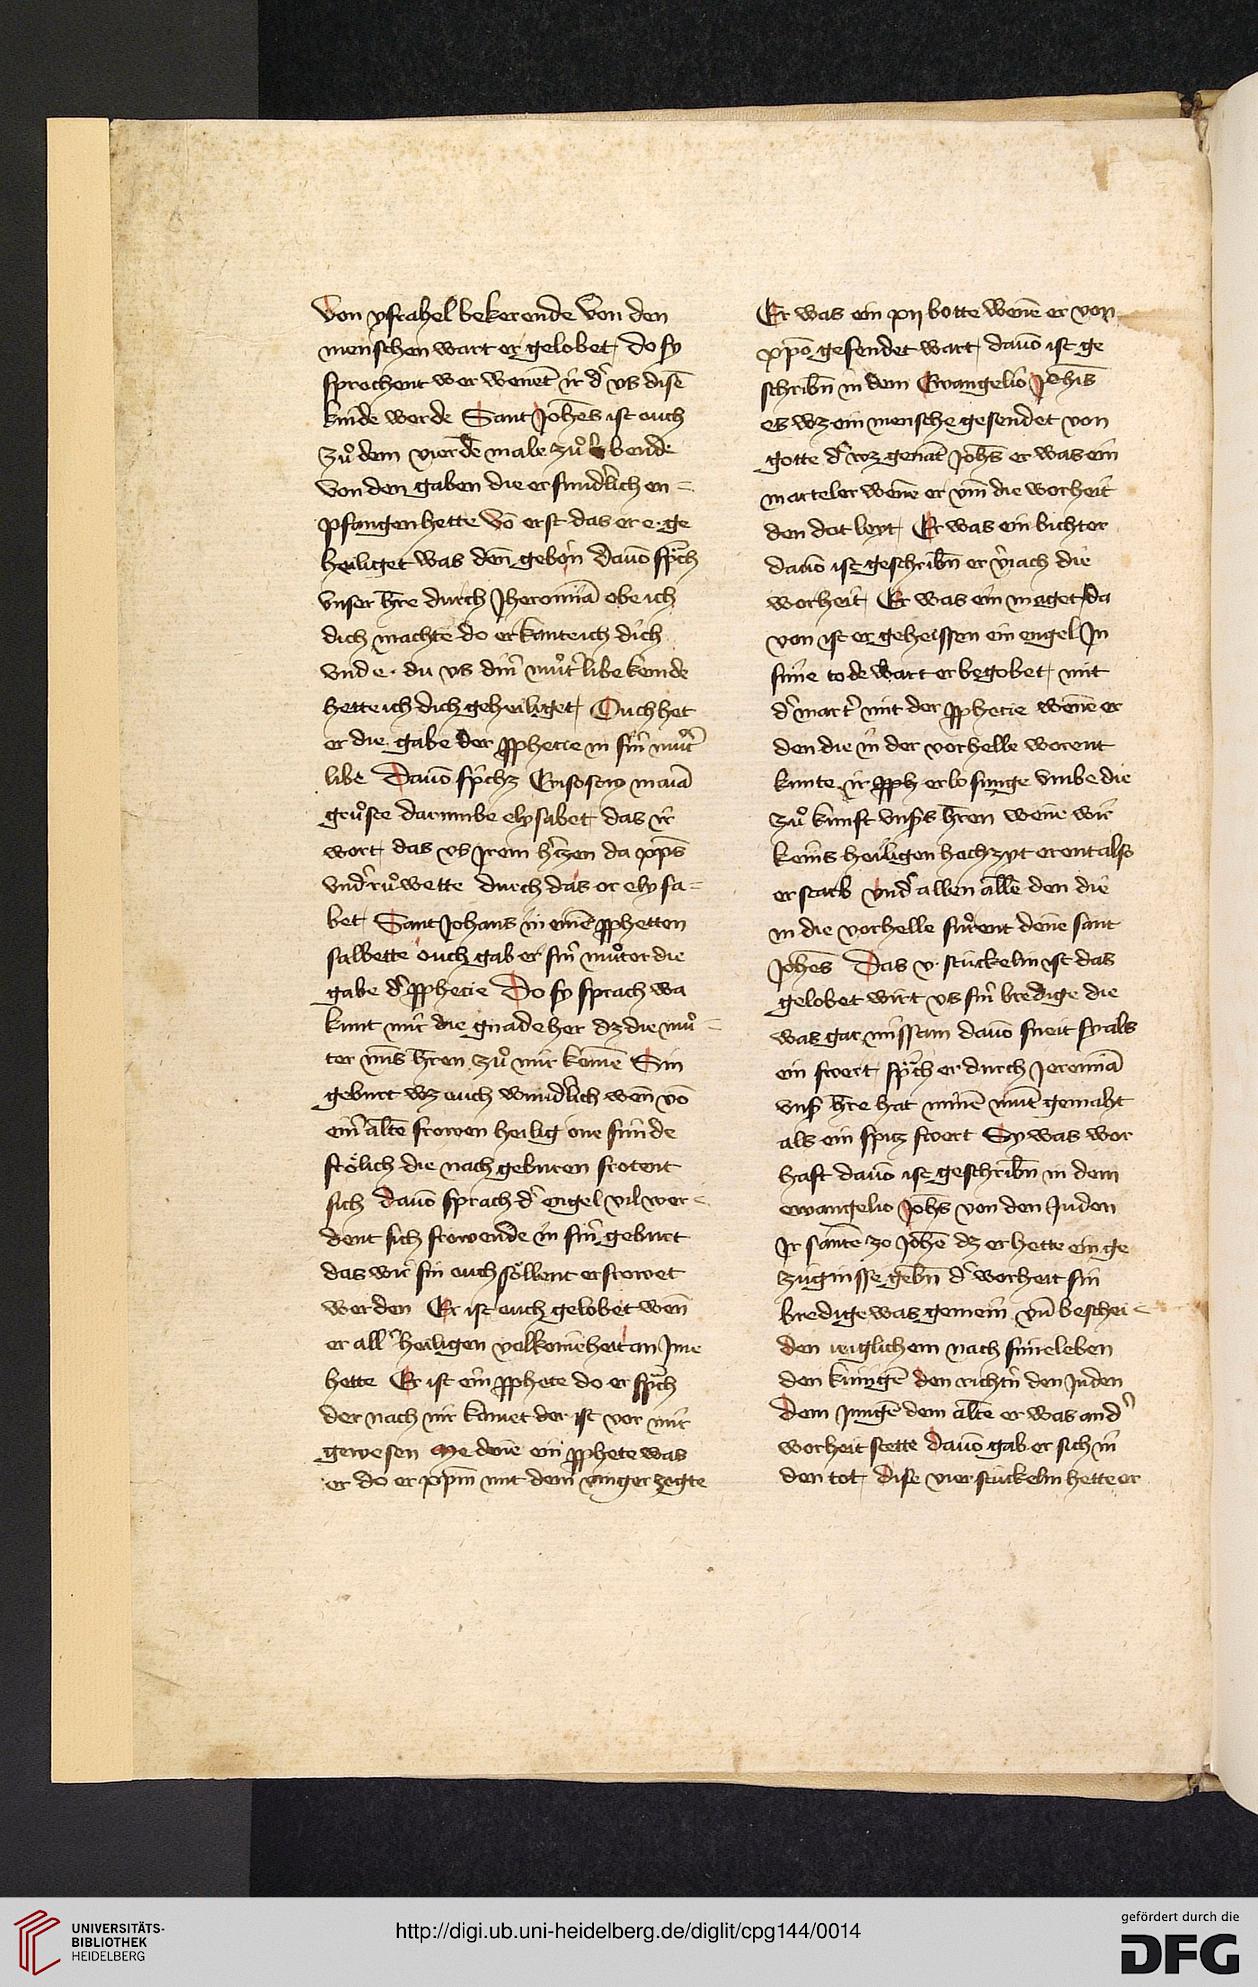 Von ysrahel bekerende Von den
menschen wart er gelobet do sy
sprochent wer wenet ir d' us disē
kinde werde Sant Johēs ist ouch
zů dem vierdē male zů lobende
Von den gaben die er sund'lich en=
pfangen hette Vō erst das er e ge
heiliget was den geborn dauō sprach
vnser h're durch Jheromiā obe ich
dich machte do erkante ich dich
vnd e du us din' můt' libe keinde
hette ich dich geheiliget Ouch het
er die gabe der pphecie in sin' můt'
libe Dauō sprichz maiā
grůste darumbe elysabet das ir
wort das us irem h'tzen da xp̄s
vnd' růwette durch das or elysa=
bet Sant Johans in einē pphetten
salbette ouch gab er sin' můter die
gabe d' pphecie Do sy sprach wa
kunt mir die gnade her dz die mů=
ter mīs h're̅n zů mir kemē Sin
geburt wz ouch wund'lich wen vō
ein' altē frowen heilig one sunde
frölich die nach geburen frotent
sich dauō sprach d' engel vil wer=
dent sich frowende in sin' geburt
das wir sin ouch söllent erfrowet
werden Er ist ouch gelobet wen
er all' heiligen volkomēheit an Jme
hette Er ist ein pphete do er sprach
der nach mir kumet der ist vor mir
gewesen Me denē ein pphete was
er do er xp̄m mit dem vinger zogte
Er was ein botte wenē er von
xp̄o gesendet wart dauō ist ge
schribn in dem Evangelio Johīs
es wz ein mensche gesendet von
gotte d' wz genāt Johs er was ein
marteler wenē er vm̄ die worheit
den dot leyt Er was ein bichter
dauō ist geschribn er v'iach die
worheit Er was ein maget da
von ist er geheissen ein engel Jn
sime tode wart er begobet mit
d' mart' mit der pphecie wenē er
den die in der vorhelle worent
kunte ir erlosunge vmbe die
zů kunft vnsers h'ren wenē wir
keins heiligen hochzyt erent also
er starb vnd' allen allē den die
in die vorhelle fůrent denē sant
Johēs Das v stückelin ist das
gelobet wirt us sin' bredige die
was gar dauō sneit sy als
ein swert sprach er durch Jeremiā
vns' h're hat minē mūt gemaht
als ein spitz swert Sy was wor
haft dauō ist geschribn in dem
ewangelio Johs von den Juden
Jr santē zo Johē dz er hette ein ge
zügnisse gebn d' worheit sin
bredige was gemein vn̄ beschei=
den ieiglichem nach sime leben
den künigē den richtn den Juden
dem Jungē dem altē er was and'
worheit stette dauō gab er sich in
den tot dise vier stückelin hette er
UNIVERSITÄTS-
BIBLIOTHEK
HEIDELBERG
http://digi.ub.uni-heidelberg.de/diglit/cpg144/0014
gefördert durch die
DFG